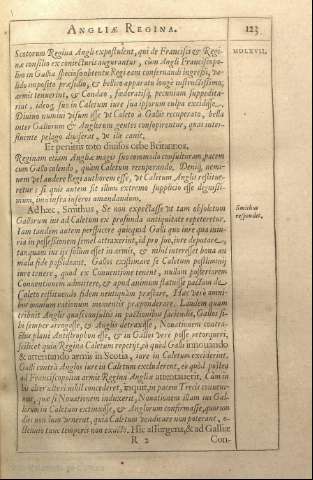 ANGLIÆ REGINA. 123
MDLXVII.
Scotorum Regina Angli expostulent, qui de Francisci & Regi-
næ consilio ex coniecturis augurantur, cùm Angli Francisco po-
lin Gallia specioso obtentu Regi eam conseruandi ingressi, va-
lido imposito præsidio, & bellico apparatu longè instructissimo,
armis tenuerint, & Condæo, fœderatisq; pecuniam suppedita-
rint, ideoq; suo in Caletum iure sua ipsorum culpa excidisse.
Diuino numini visum esse de Caleto à Gallis recuperato, bella
inter Gallorum & Anglorum gentes consopirentur, quas inter-
fluente pelago diuiserat, de iis canit,
Et penitus toto diuisos orbe Britannos.
Reginam etiam Angliæ magis suo commodo consulturam, pacem
cum Gallo colendo, quàm Caletum recuperando. Deniq; nemi-
nem vel audere Regi authorem esse, de Caletum Anglis restitue-
retur: si quis autem sit illum extremo supplicio esse dignissi-
mum, imò infra inferos amandandum.
Ad hæc, Smithus, Se non expectasse vt tam absolutum
Smithus
respondet.
Gallorum ius ad Caletum ex profunda antiquitate repeteretur.
Iam tandem autem perspicere quicquid Galli quo iure qua iniu-
ria in possessionem semel attraxerint, id pro suo, iure deputare,
tanquam ius ipsissimum esset in armis, & nihil interesset bona an
mala fide possideant. Gallos existimare se Caletum postliminij
iure tenere, quod ex Conuentione tenent, nullam posteriorem
Conuentionem admittere, & apud animum statuisse pactam de
Caleto restituendo fidem neutiquam præstare. Hæc verò omni-
bus omnium nationum innocuis præponderare. Laudem quam
tribuit Anglis quasi consultis in pactionibus faciendis, Gallos si-
bi semper arrogasse, & Anglis detraxisse, Nouationem contra-
ctus planè Antistrophon esse, & in Gallos verè posse retorqueri,
scilicet quia Regina Caletum repetijt, eò quòd Galli innouando
& attentando armis in Scotia, iure in Caletum exciderint.
Galli contrà Anglos iure in Caletum excluderent, eò quòd posteà
ad Franciscopolim armis Regina Angliæ attentauerit, Cùm in
his alter alteri nihil concederet, inquit, in pacem Trecis conueni-
mus, quæ si Nouationem induxerit, Nouationem illam ius Gal-
lorum in Caletum extinxisse, & Anglorum confirmasse, quorum
dies non tunc venerat, quia Caletum vendicare non poterant, o-
ctennio tunc temporis non exacto. Hic assurgens, & ad Galliæ
R 2 Con-